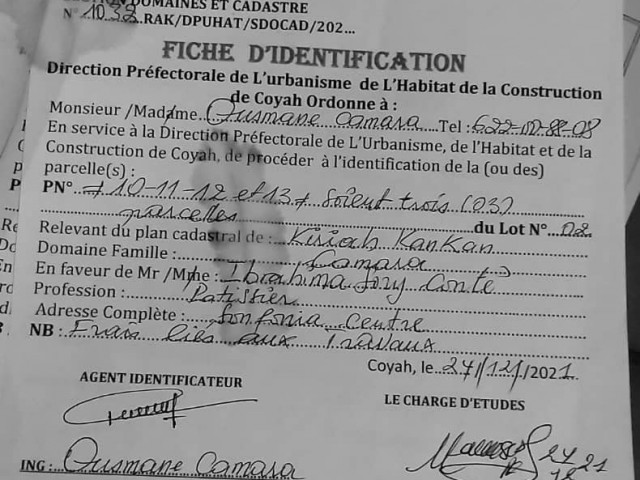 DOMAINES ET CADASTRE
N° 1032.RAK/DPUHAT/SDOCAD/202...
FICHE D'IDENTIFICATION
Direction Préfectorale de L'urbanisme de L'Habitat de la Construction
de Coyah Ordonne à :
Monsieur /Madame Ousmane Camara Tel :
En service à la Direction Préfectorale de L'Urbanisme, de l'Habitat et de la
Construction de Coyah, de procéder à l'identification de la (ou des)
parcelle(s) :
PN° 10-11-12 et 13 soient trois (03)
parcelles du Lot N° 02
Relevant du plan cadastral de : Kiriah Kankan
Domaine Famille : Camara
En faveur de Mr /Mme : Ibrahima Sory Conté
Profession : Patissier
Adresse Complète : Sonfonia Centre
NB : Frais liés aux Travaux
Coyah, le 27/12/2021
AGENT IDENTIFICATEUR
LE CHARGE D'ETUDES
ING : Ousmane Camara